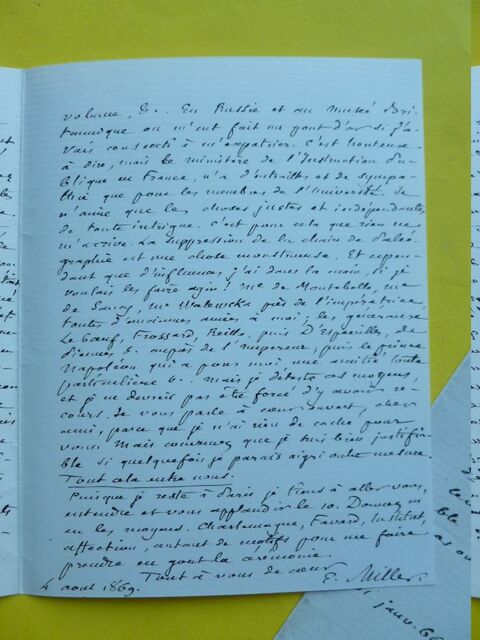 volume, &. En Russie et au Museé Bri-
tannique on m'eut fait un pont d'or si j'a-
vais consenti à m'expatrier. C'est honteux
à dire, mais le ministère de l'Instruction Pu-
blique en France, n'a d'entrailles et de sympa-
thie que pour les membres de l'Université. Je
n'aime que les choses justes et indépendantes
de toute intrigue. C'est pour cela que rien ne
m'arrive. La suppression de la chaire de Paléo-
graphie est une chose monstrueuse. Et cepen-
dant que d'influences j'ai dans la main, si je
voulais les faire agir! Me de Montebello, me
de Saucy, me Walewska près de l'impératrice,
toutes d'anciennes amies à moi; les généraux
Le Bœuf, Frossard, Reille, puis d'Espeuilles, de
Piennes &. auprès de l'empereur, puis le prince
Napoléon qui a pour moi une amitié toute
particulière &. Mais je déteste ces moyens,
et je ne devrais pas être forcé d'y avoir re-
cours. Je vous parle à cœur ouvert, cher
ami, parce que je n'ai rien de caché pour
vous. Mais convenez que je suis bien justifia-
ble si quelquefois je parais aigri outre mesure.
Tout cela entre nous.
Puisque je reste à Paris je tiens à aller vous
entendre et vous applaudir le 10. Donnez m'
en les moyens. Charlemagne, Favard, Institut,
affection, autant de motifs pour me faire
prendre en goût la cérémonie.
Tout à vous de cœur
4 aout 1869. E. Miller.
janv. 66